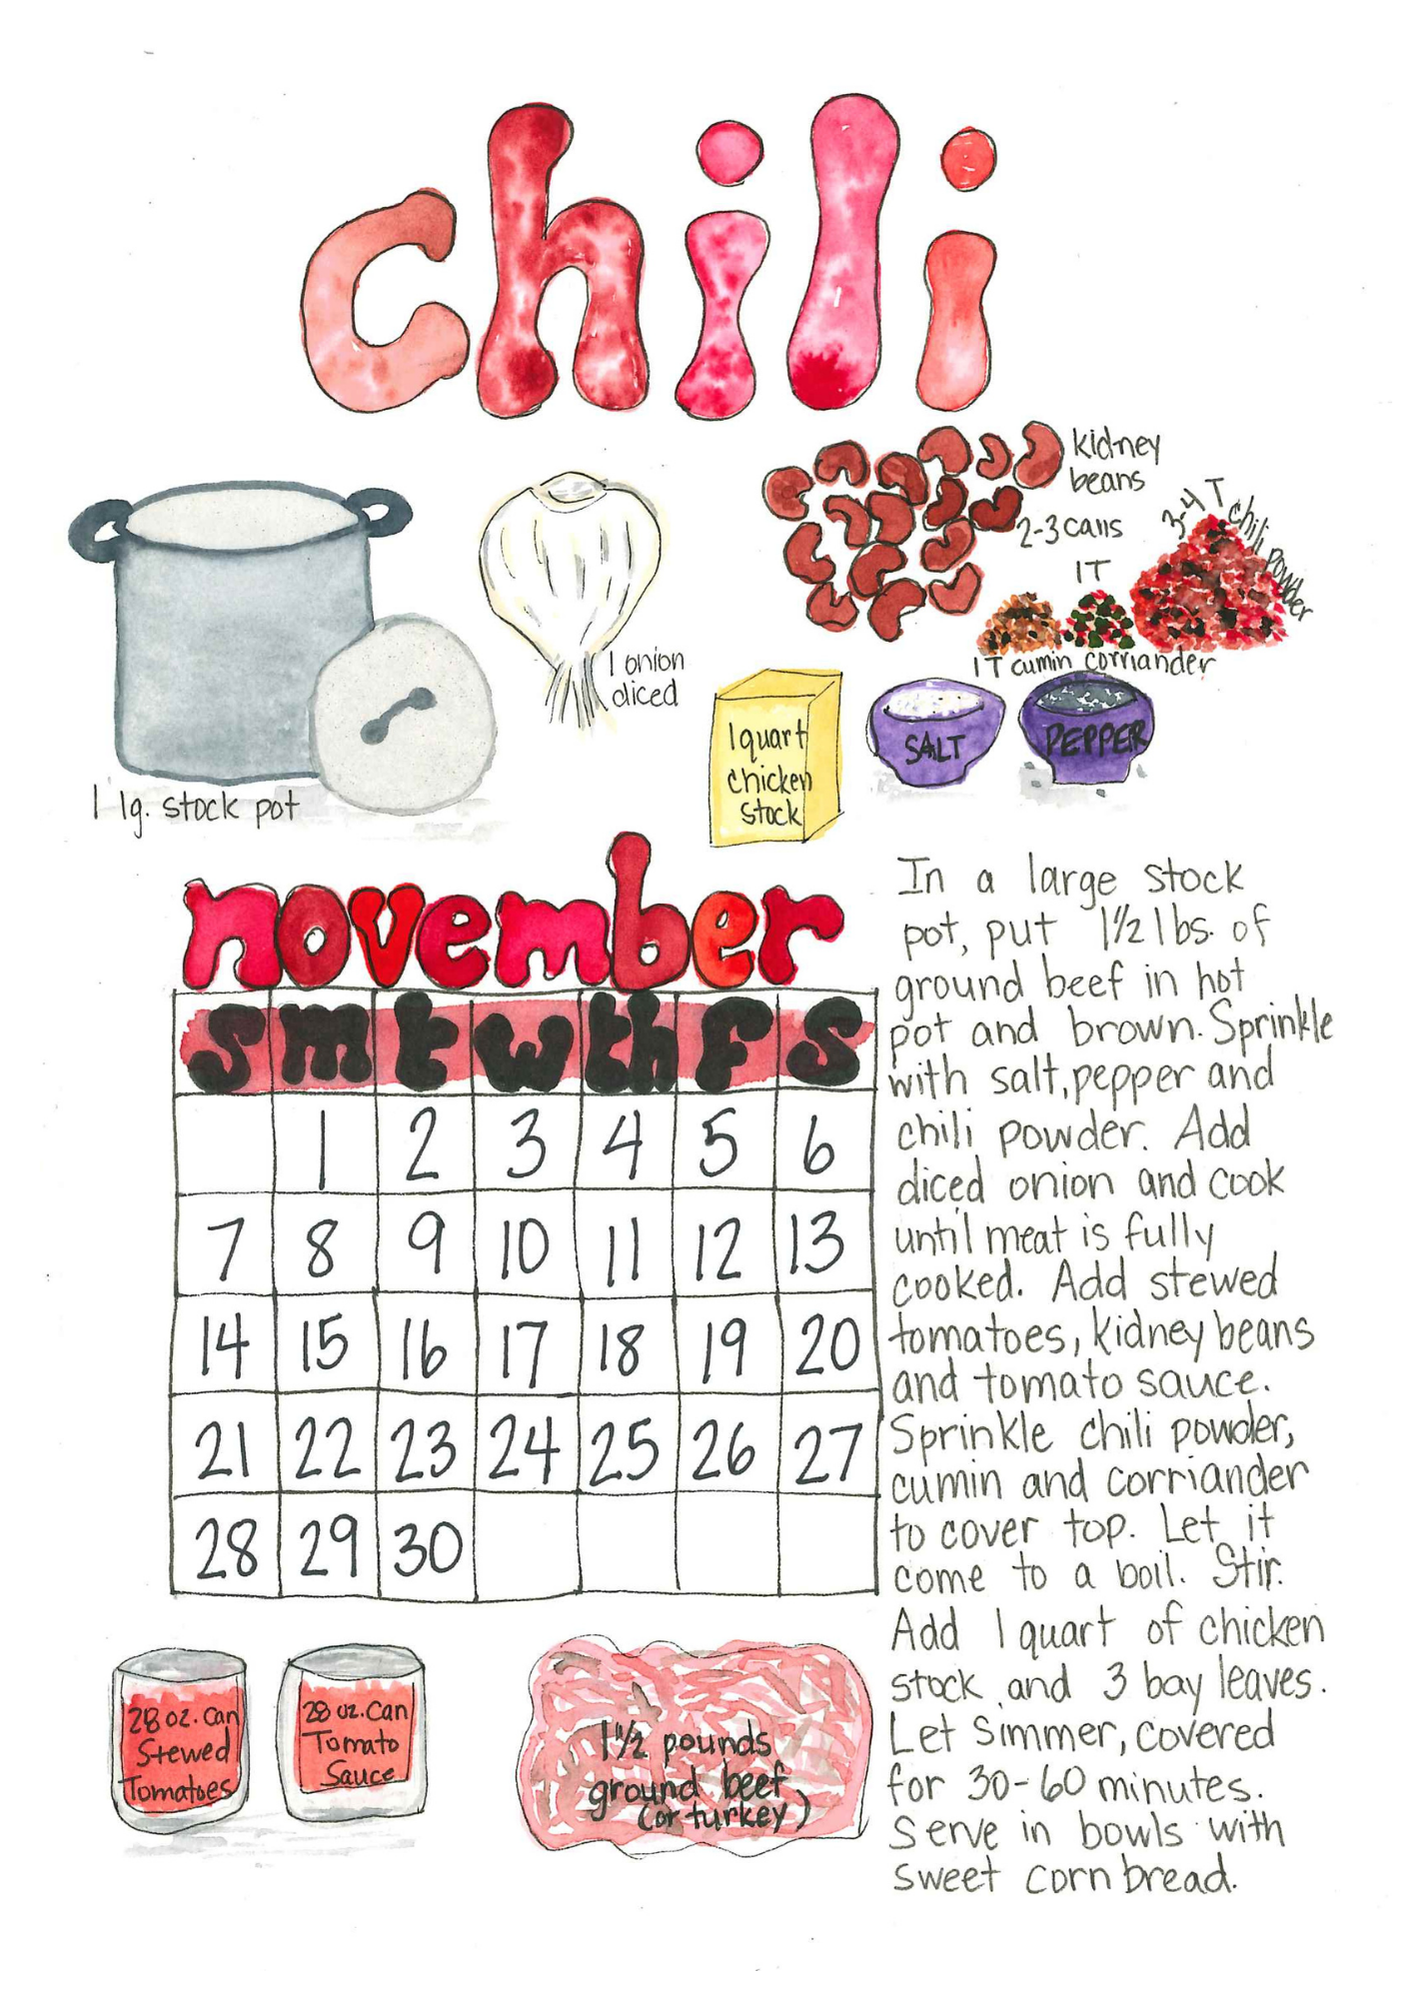 chili
kidney
beans
2-3 cans
3-4 T chili powder
1T
1T cumin corriander
1 onion
diced
1 quart
chicken
stock
SALT
PEPPER
1 lg. stock pot
november
s m t w th f s
1 2 3 4 5 6
7 8 9 10 11 12 13
14 15 16 17 18 19 20
21 22 23 24 25 26 27
28 29 30
In a large stock
pot, put 1½ lbs. of
ground beef in hot
pot and brown. Sprinkle
with salt, pepper and
chili powder. Add
diced onion and cook
until meat is fully
cooked. Add stewed
tomatoes, kidney beans
and tomato sauce.
Sprinkle chili powder,
cumin and corriander
to cover top. Let it
come to a boil. Stir.
Add 1 quart of chicken
stock and 3 bay leaves.
Let simmer, covered
for 30-60 minutes.
Serve in bowls with
sweet corn bread.
28 oz. can
Stewed
Tomatoes
28 oz. can
Tomato
Sauce
1½ pounds
ground beef
(or turkey)